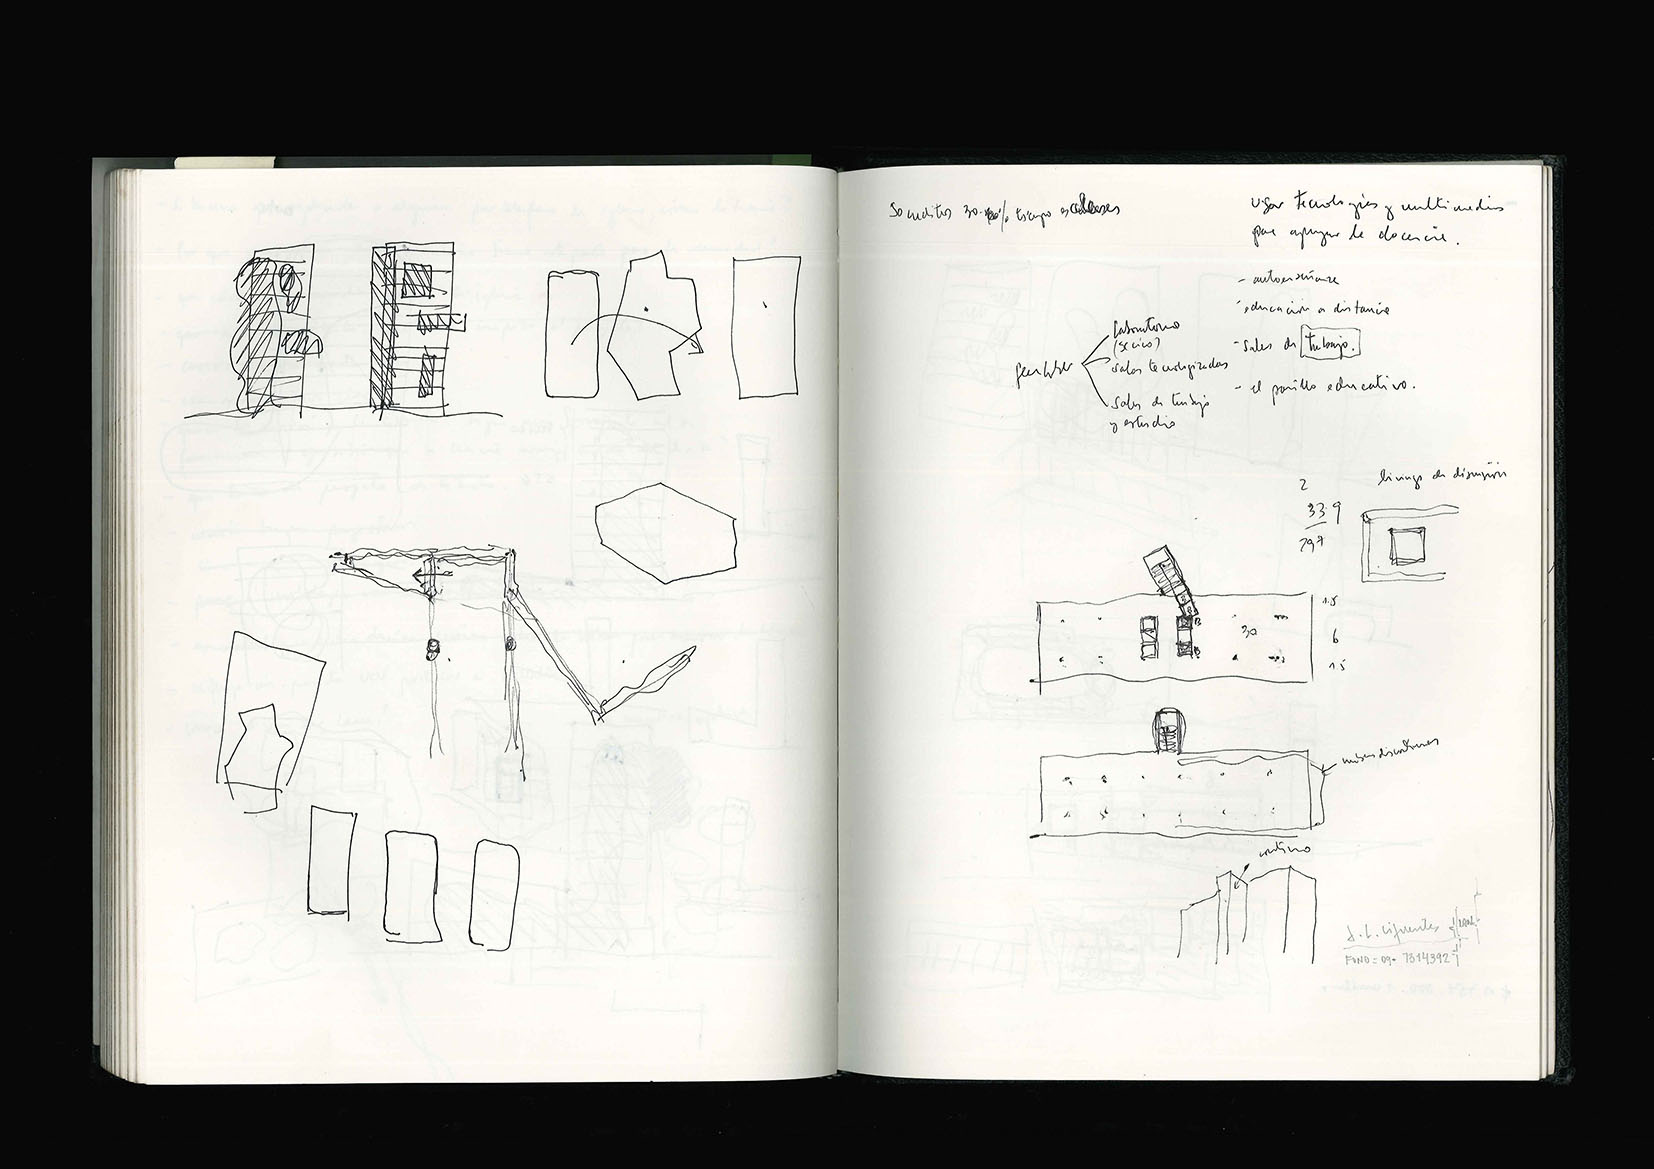 50 creditos 30% tiempo es clases
usar tecnologías y multimedios
para apoyar la docencia.
- autoenseñanza
- educación a distancia
- Salas de trabajo.
- el pasillo educativo.
laboratorio
(seco)
salas tecnologizadas
salas de trabajo
y estudio
livings de discusión
2
33 9
297
1.5
30
6
1.5
continuo
J. L. Cifuentes
FONO = 09- 7314392